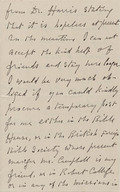 from Dr. Harris stating
that it is hopeless at present
in the ministry I can not
accept the kind help of
friends and stay here longer
I would be very much ob-
liged if you could kindly
procure a temporary post
for me either in the Bible
House, or in the British Foreign
Bible Society whose present
manager Mr. Campbell is my
friend, or in Robert College
or in any of the missions.